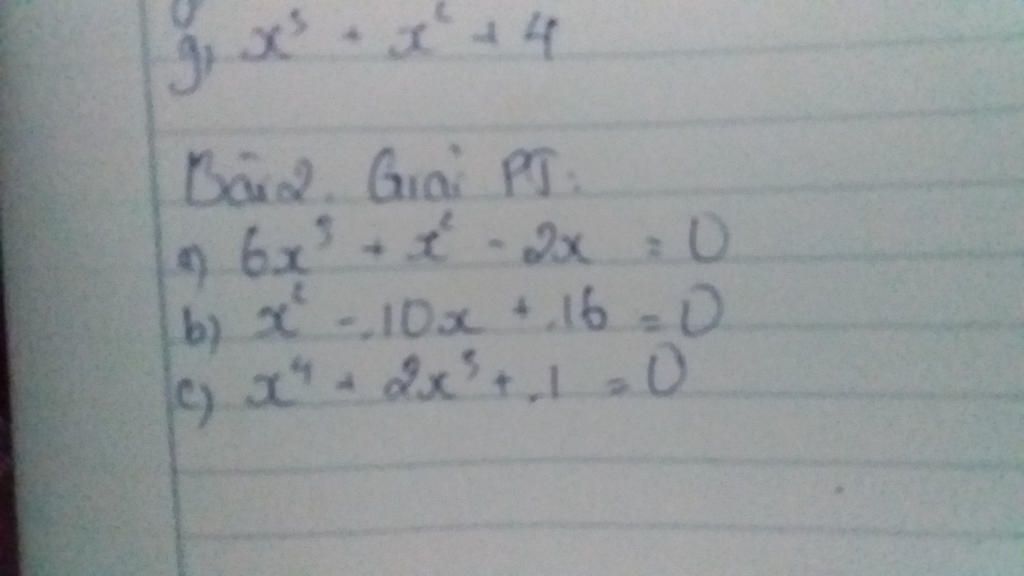 g) x³ + x² + 4
Bài 2. Giải PT:
a) 6x³ + x² - 2x = 0
b) x² - 10x + 16 = 0
c) x⁴ + 2x³ + 1 = 0